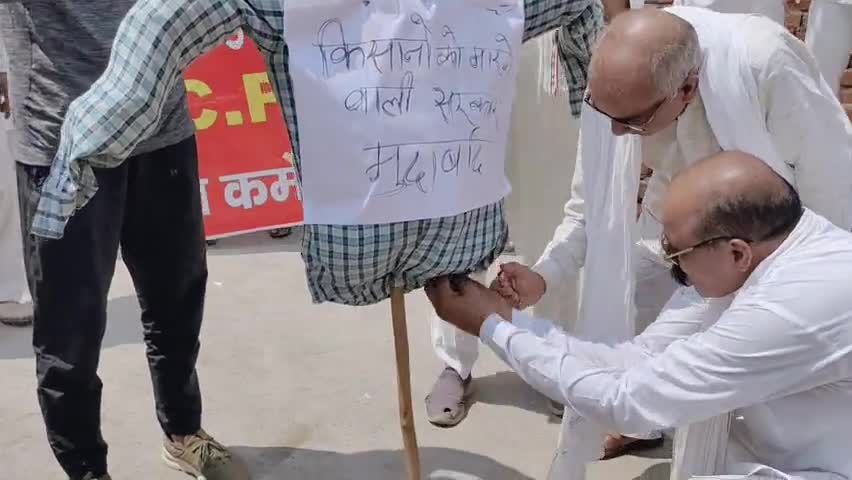 किसानो को मारने
वाली सरकार
मुर्दाबाद
C.P
कमे